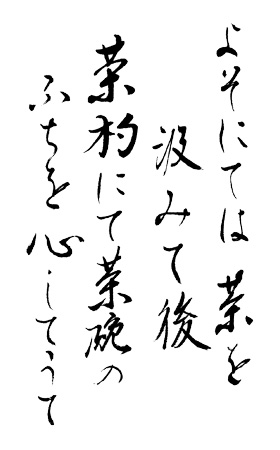 よそにては茶を
汲みて後
茶杓にて茶碗の
ふちを心してうて